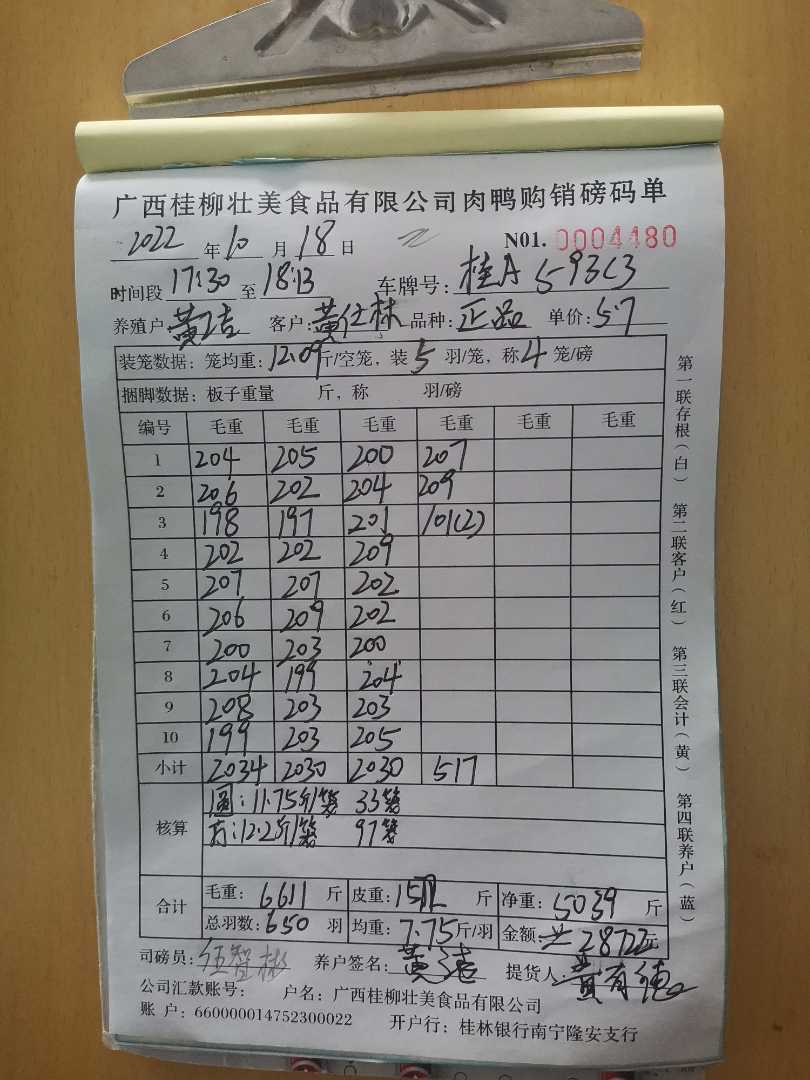 广西桂柳壮美食品有限公司肉鸭购销磅码单
2022 年 10 月 18 日 N01. 0004480
时间段 17:30 至 18:13 车牌号: 桂A 593C3
养殖户: 黄 客户: 黄仕林 品种: 正品 单价: 5.7
装笼数据: 笼均重: 12.09 斤/空笼, 装 5 羽/笼, 称 4 笼/磅
捆脚数据: 板子重量 斤, 称 羽/磅
编号 毛重 毛重 毛重 毛重 毛重 毛重
1 204 205 200 207
2 206 202 204 209
3 198 197 201 101(2)
4 202 202 209
5 207 207 202
6 206 209 202
7 200 203 200
8 204 199 204
9 208 203 203
10 199 203 205
小计 2034 2030 2030 517
核算 圆: 11.75斤/笼 33笼
方: 12.2斤/笼 97笼
合计 毛重: 6611 斤 皮重: 1572 斤 净重: 5039 斤
总羽数: 650 羽 均重: 7.75 斤/羽 金额: 28722元
司磅员: 伍智彬 养户签名: 黄 提货人: 黄有德
公司汇款账号: 户名: 广西桂柳壮美食品有限公司
账 户: 660000014752300022 开户行: 桂林银行南宁隆安支行
第一联存根(白) 第二联客户(红) 第三联会计(黄) 第四联养户(蓝)